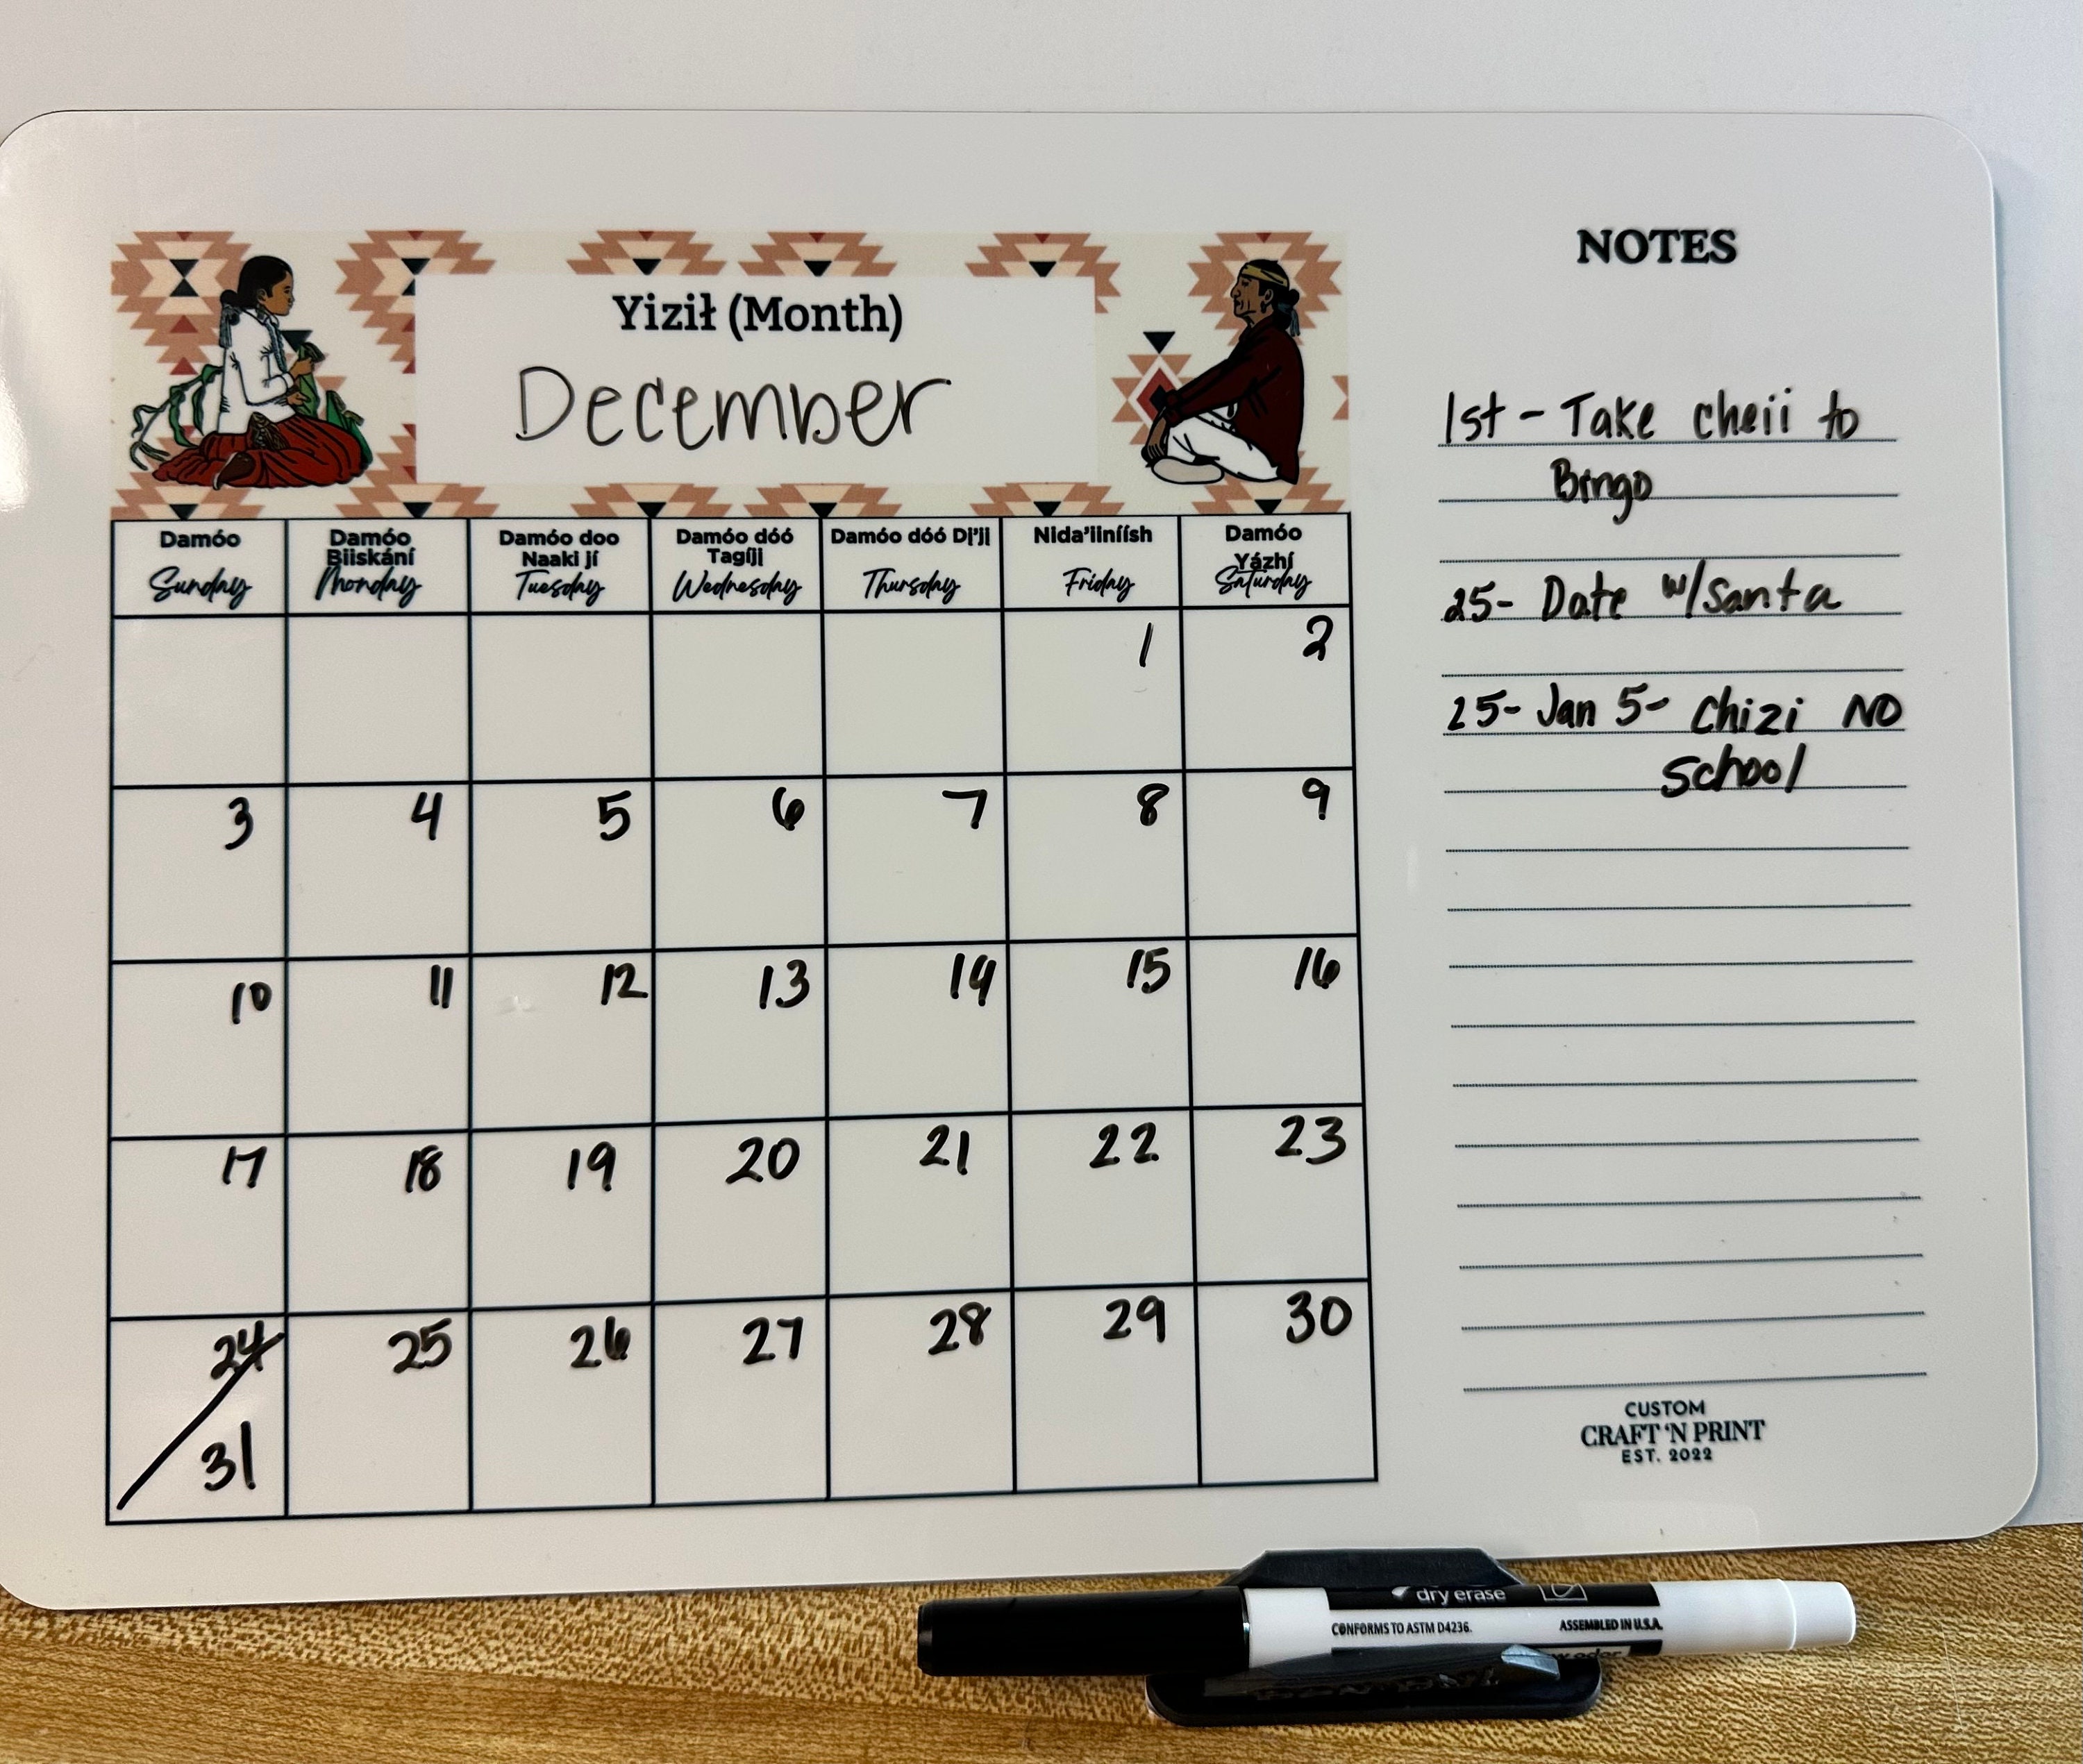 Yiził (Month)
December
Damóo
Sunday
Damóo
Biiskání
Monday
Damóo doo
Naaki jí
Tuesday
Damóo dóó
Tagíjį
Wednesday
Damóo dóó Dį'jį
Thursday
Nida'iiníísh
Friday
Damóo
Yázhí
Saturday
1 2
3 4 5 6 7 8 9
10 11 12 13 14 15 16
17 18 19 20 21 22 23
24 25 26 27 28 29 30
31
NOTES
1st - Take cheii to
Bingo
25- Date w/Santa
25- Jan 5- Chizi NO
School
CUSTOM
CRAFT 'N PRINT
EST. 2022
dry erase
CONFORMS TO ASTM D4236.
ASSEMBLED IN U.S.A.